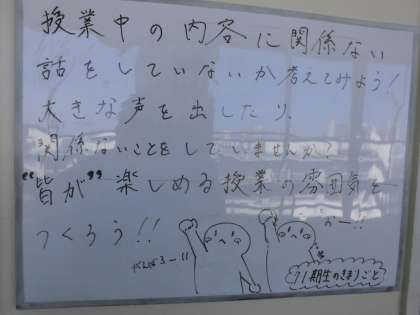 授業中の内容に関係ない
話をしていないか考えてみよう!
大きな声を出したり、
関係ないことをしていませんか?
"皆が"楽しめる授業の雰囲気を
つくろう!!
おー!!
がんばろー!!
71期生のきまりごと